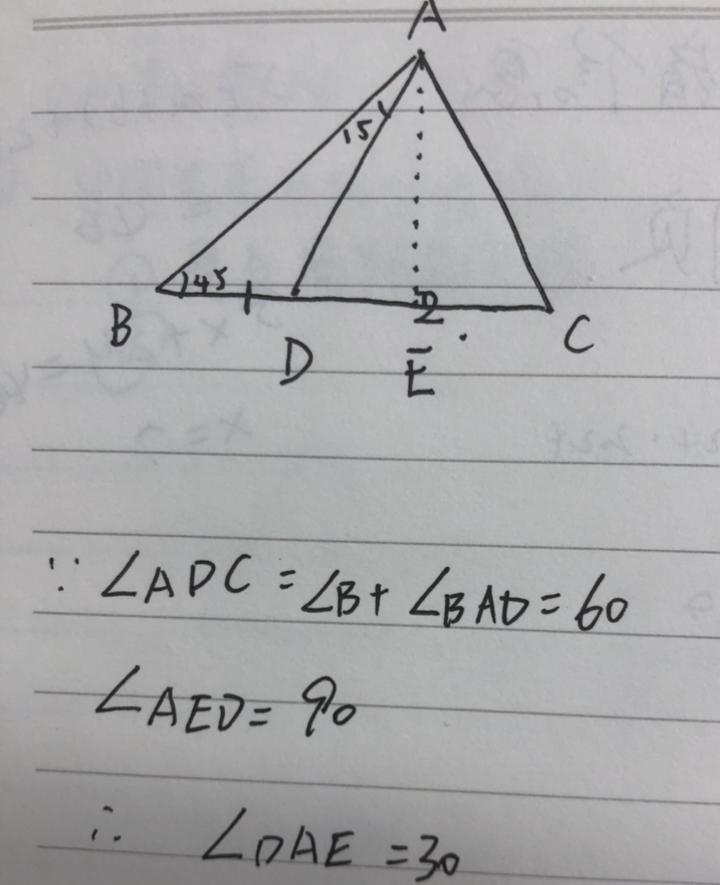 A
15
45
B
D
E
C
∵ ∠ADC = ∠B + ∠BAD = 60
∠AED = 90
∴ ∠DAE = 30